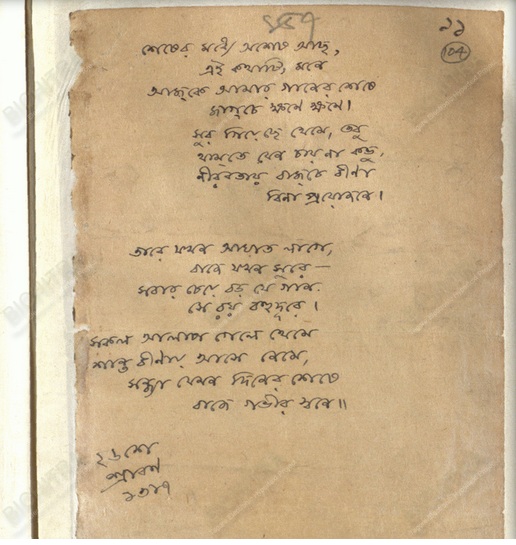 ১৫৭
১১
104
শেষের মধ্যে অশেষ আছে,
এই কথাটি, মনে
আজকে আমার গানের শেষে
জাগ্‌চে ক্ষণে ক্ষণে।
সুর গিয়েছে থেমে, তবু
থাম্‌তে যেন চায় না কভু,
নীরবতায় বাজ্‌চে বীণা
বিনা প্রয়োজনে।
তারে যখন আঘাত লাগে,
বাজে যখন সুরে –
সবার চেয়ে বড় যে গান
সে রয় বহুদূরে।
সকল আলাপ গেলে থেমে
শান্ত বীণায় আসে নেমে,
সন্ধ্যা যেমন দিনের শেষে
বাজে গভীর স্বনে॥
২৬শে
শ্রাবণ
১৩১৭